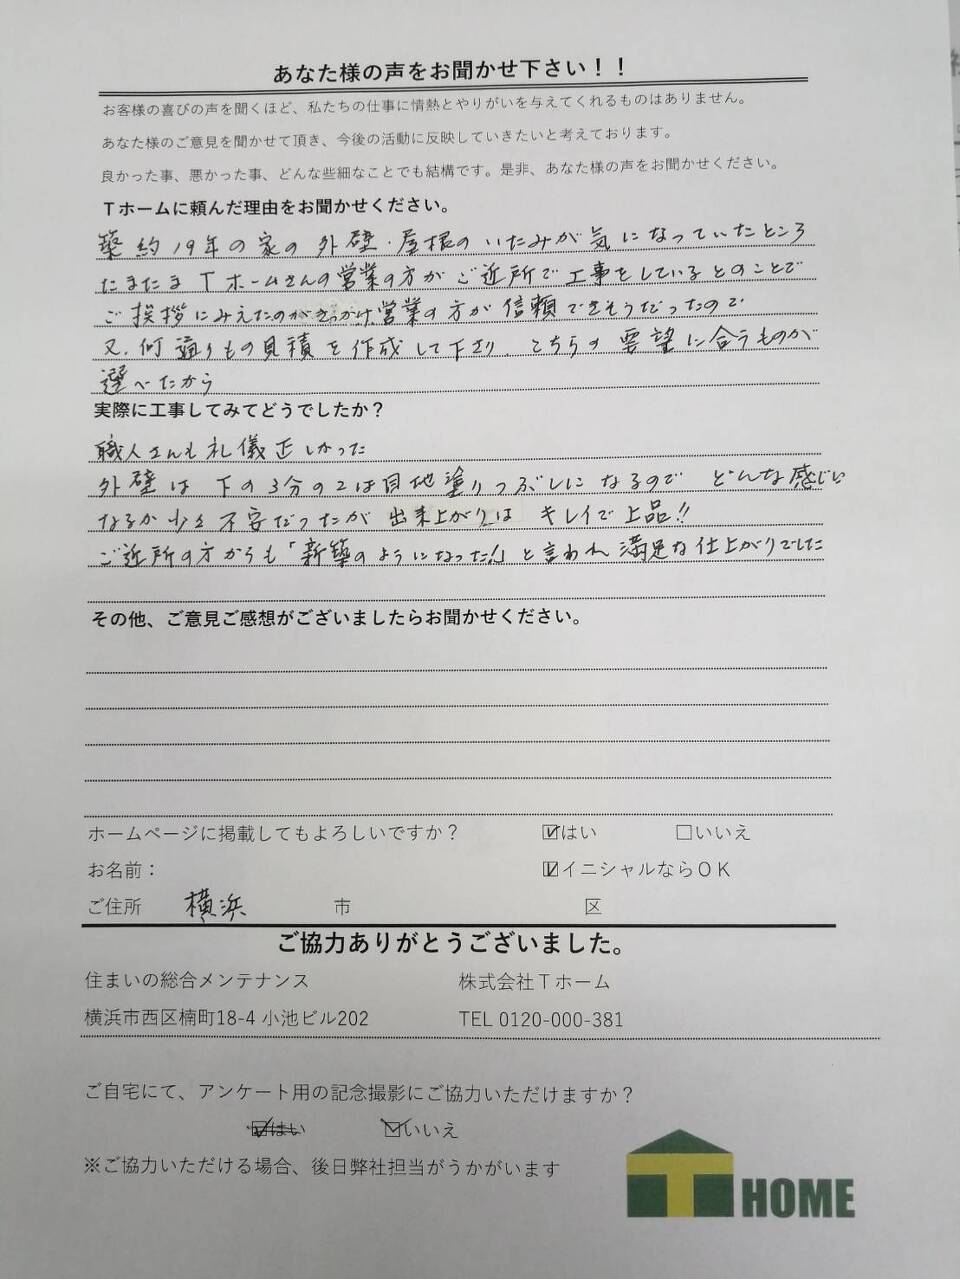 あなた様の声をお聞かせ下さい！！
お客様の喜びの声を聞くほど、私たちの仕事に情熱とやりがいを与えてくれるものはありません。
あなた様のご意見を聞かせて頂き、今後の活動に反映していきたいと考えております。
良かった事、悪かった事、どんな些細なことでも結構です。是非、あなた様の声をお聞かせください。
Ｔホームに頼んだ理由をお聞かせください。
築約19年の家の外壁・屋根のいたみが気になっていたところ
たまたまTホームさんの営業の方がご近所で工事をしているとのことで
ご挨拶にみえたのがきっかけ営業の方が信頼できそうだったので
又、何通りもの見積を作成して下さり、こちらの要望に合うものが
選べたから
実際に工事してみてどうでしたか？
職人さんも礼儀正しかった
外壁は下の3分の2は目地塗りつぶしになるのでどんな感じに
なるか少々不安だったが出来上がりはキレイで上品!!
ご近所の方からも「新築のようになった!」と言われ満足な仕上がりでした
その他、ご意見ご感想がございましたらお聞かせください。
ホームページに掲載してもよろしいですか？ ☑はい □いいえ
お名前： ☑イニシャルならＯＫ
ご住所 横浜 市 区
ご協力ありがとうございました。
住まいの総合メンテナンス 株式会社Ｔホーム
横浜市西区楠町18-4 小池ビル202 TEL 0120-000-381
ご自宅にて、アンケート用の記念撮影にご協力いただけますか？
☑はい ☑いいえ
※ご協力いただける場合、後日弊社担当がうかがいます
T HOME